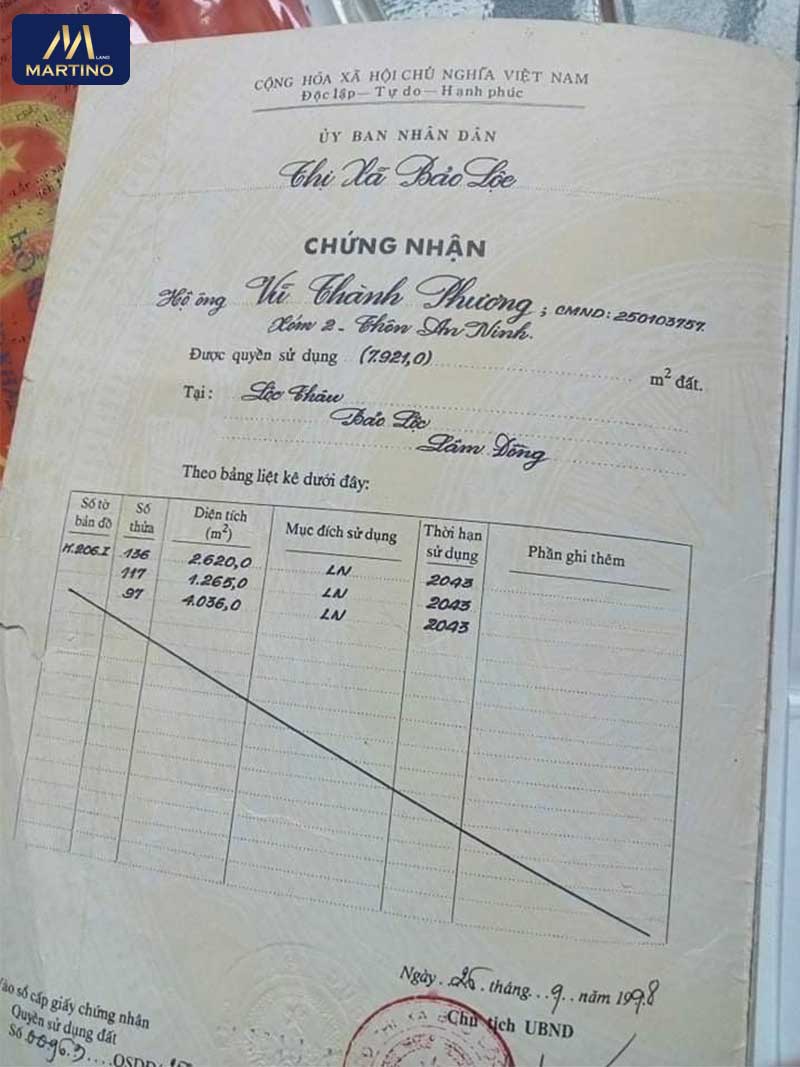 MARTINO
LAND
CỘNG HÒA XÃ HỘI CHỦ NGHĨA VIỆT NAM
Độc lập — Tự do — Hạnh phúc
ỦY BAN NHÂN DÂN
Thị Xã Bảo Lộc
CHỨNG NHẬN
Hộ ông Vũ Thành Phương ; CMND: 250103757.
Xóm 2 - Thôn An Ninh.
Được quyền sử dụng (7.921,0) m² đất.
Tại: Lộc Châu
Bảo Lộc
Lâm Đồng
Theo bảng liệt kê dưới đây:
Số tờ bản đồ Số thửa Diện tích (m²) Mục đích sử dụng Thời hạn sử dụng Phần ghi thêm
H.206.I 136 2.620,0 LN 2043
117 1.265,0 LN 2043
97 4.036,0 LN 2043
Ngày 26 tháng 9 năm 1998
Chủ tịch UBND
Vào sổ cấp giấy chứng nhận
Quyền sử dụng đất
Số 00963 QSDĐ/